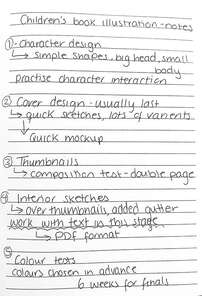 Children's book illustration - notes
① - Character design
↳ simple shapes, big head, small
body
practise character interaction
② Cover design - usually last
↳ quick sketches, lots of varients
↓
Quick mockup
③ Thumbnails
↳ composition test - double page
④ Interior sketches
↳ over thumbnails, added gutter
work with text in this stage
↳ PDF format
⑤
Colour tests
colours chosen in advance
6 weeks for finals